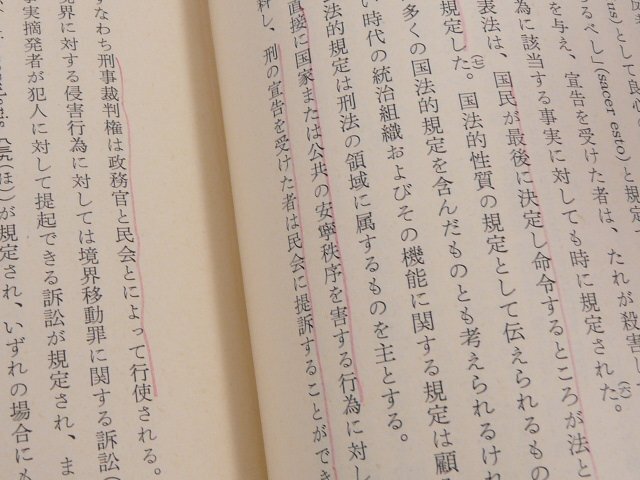 us) として良
るべし」(sacer esto) と規定
を与え、宣告を受けた者は、たれが殺害し
為に該当する事実に対しても時に規定された。
表法は、国民が最後に決定し命令するところが法と
規定した。国法的性質の規定として伝えられるもの
多くの国法的規定を含んだものとも考えられるけれ
い時代の統治組織およびその機能に関する規定は顧
法的規定は刑法の領域に属するものを主とする。
直接に国家または公共の安寧秩序を害する行為に対し
科し、刑の宣告を受けた者は民会に提訴することができ
すなわち刑事裁判権は政務官と民会とによって行使される。
境界に対する侵害行為に対しては境界移動罪に関する訴訟(
事実摘発者が犯人に対して提起できる訴訟が規定され、ま
(ほ)が規定され、いずれの場合にも